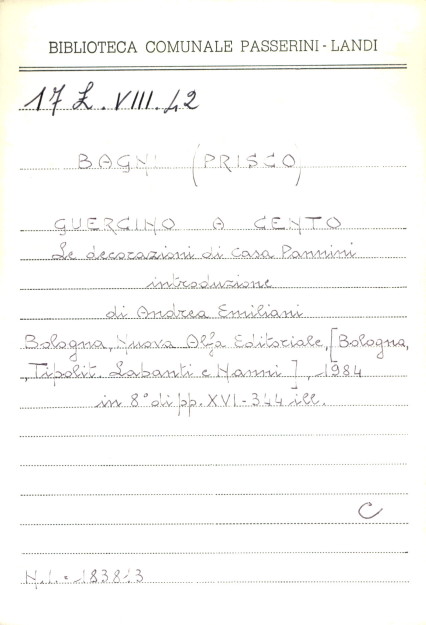 BIBLIOTECA COMUNALE PASSERINI - LANDI
17 Z. VIII. 42
BAGNI (PRISCO)
GUERCINO A CENTO
Le decorazioni di Casa Pannini
introduzione
di Andrea Emiliani
Bologna, Nuova Alfa Editoriale, [Bologna,
Tipolit. Labanti e Nanni], 1984
in 8° di pp. XVI-344 ill.
C
N.i.= 183813